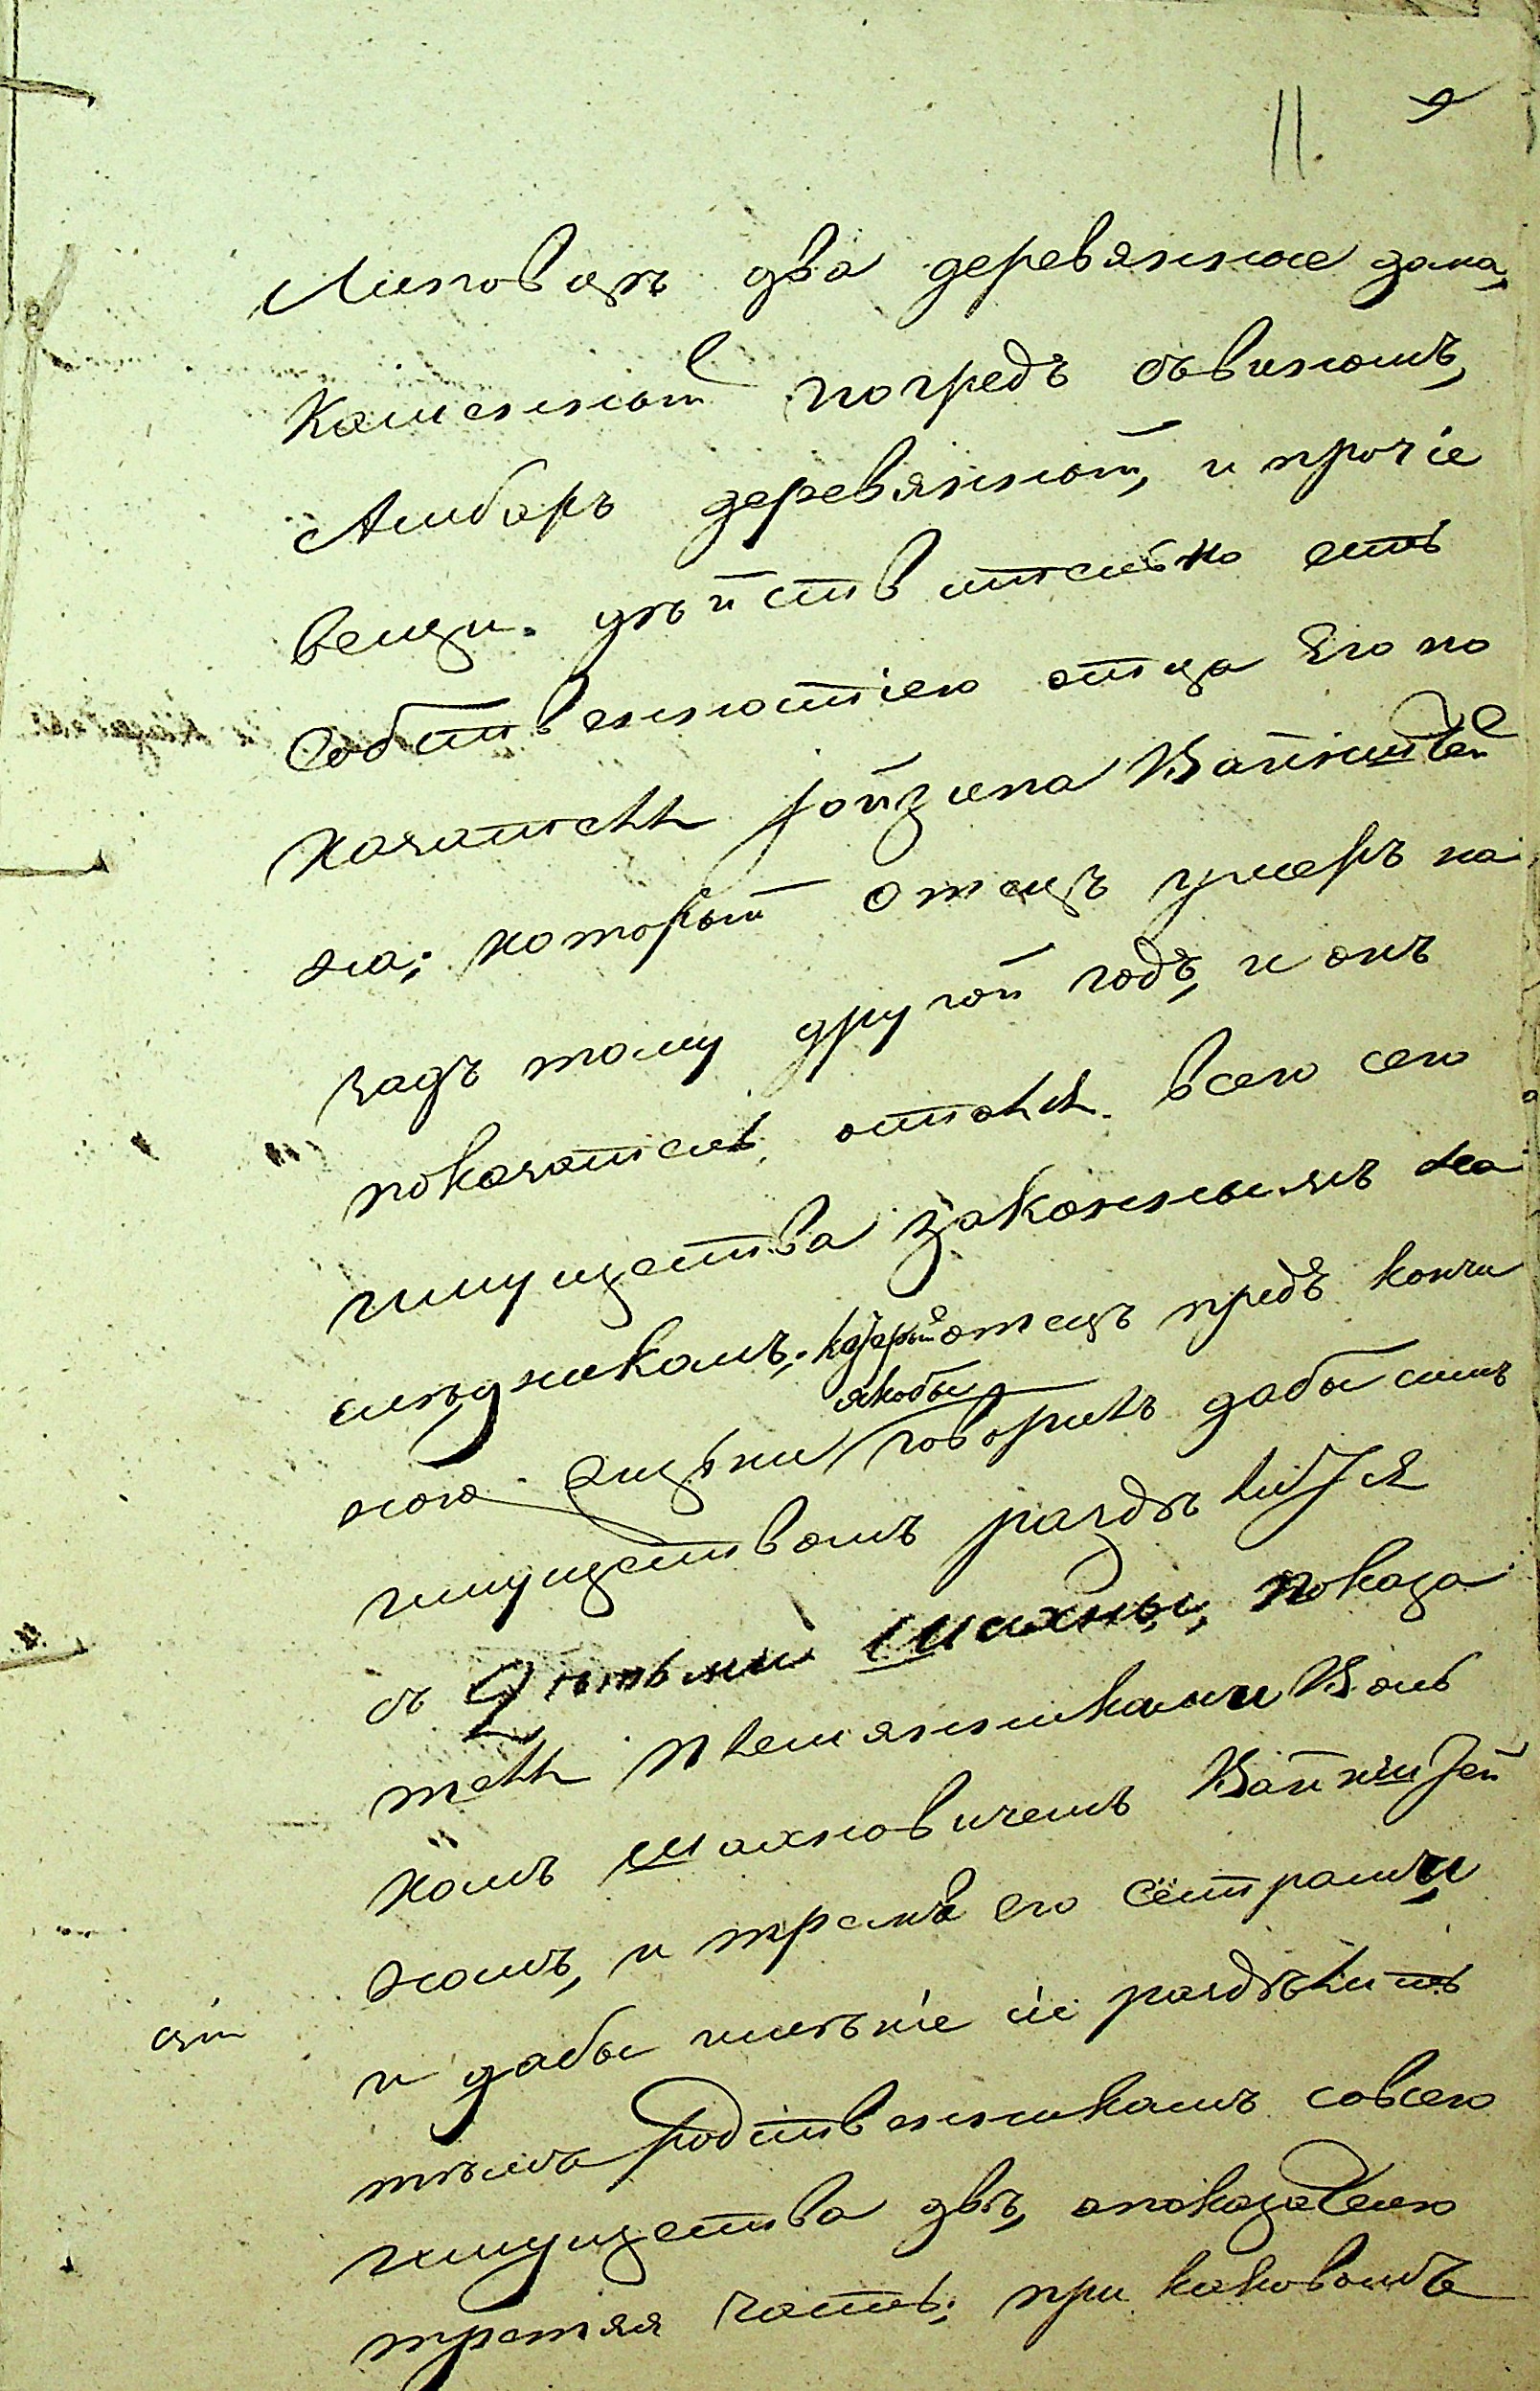 11.
Липовцѣ два деревянные дома,
Каменный погребъ съвиномъ,
Амбаръ деревянный, и прочіе
вещи. дѣйствительно есть
Собственностію отца Его по
казатель Іойзипа Вайнштей
на; который отецъ умеръ на
задъ тому другой годъ, и онъ
показатель остался всего сего
имущества законнымъ на
слѣдникомъ; который отецъ предъ кончи
ною якобы говорилъ дабы симъ
имуществомъ раздѣлится
съ Дѣтьми Шахны, показа
тель племянниками Воль
комъ Шахновичемъ Вайнштей
номъ, и тремя его сестрами
и дабы имѣніе сіе раздѣлить
тѣмъ родственникамъ совсего
имущества двѣ, апоказателю
третяя часть; при каковомъ